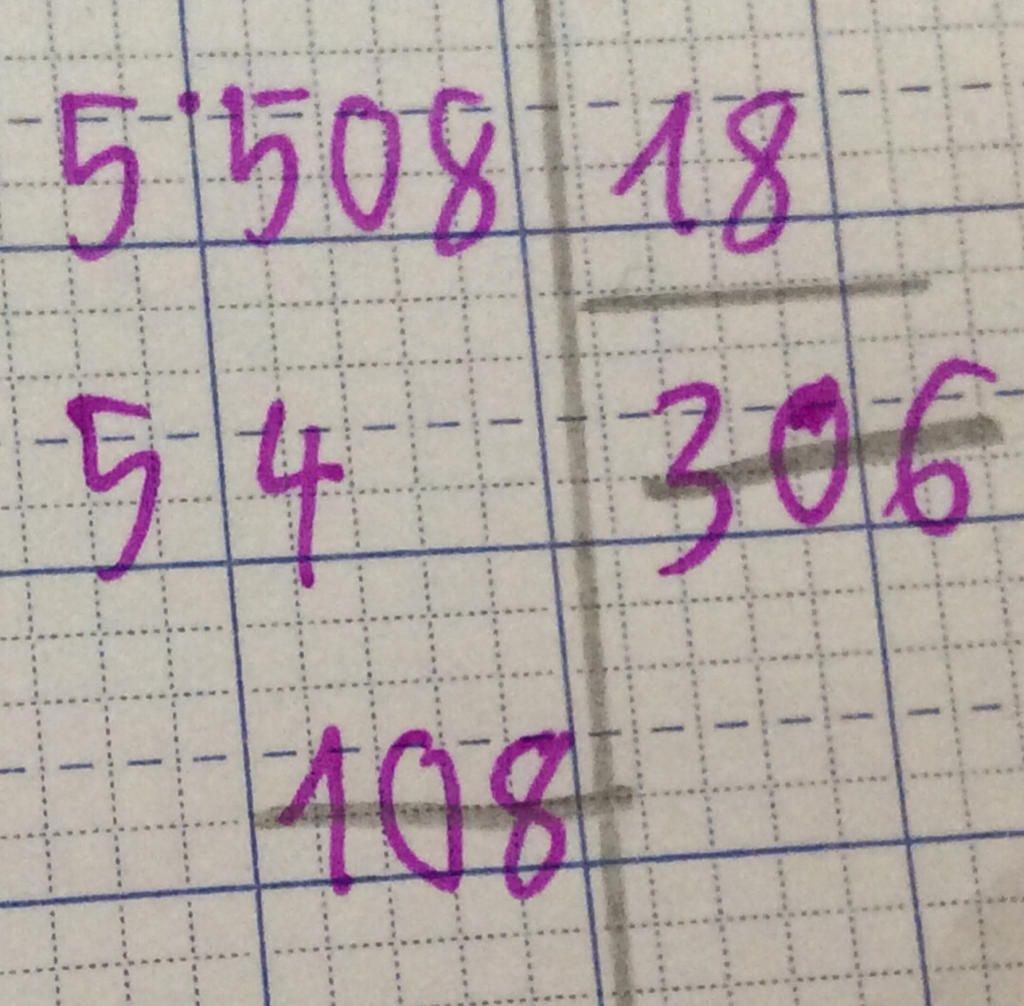 5'508 18
54 306
108